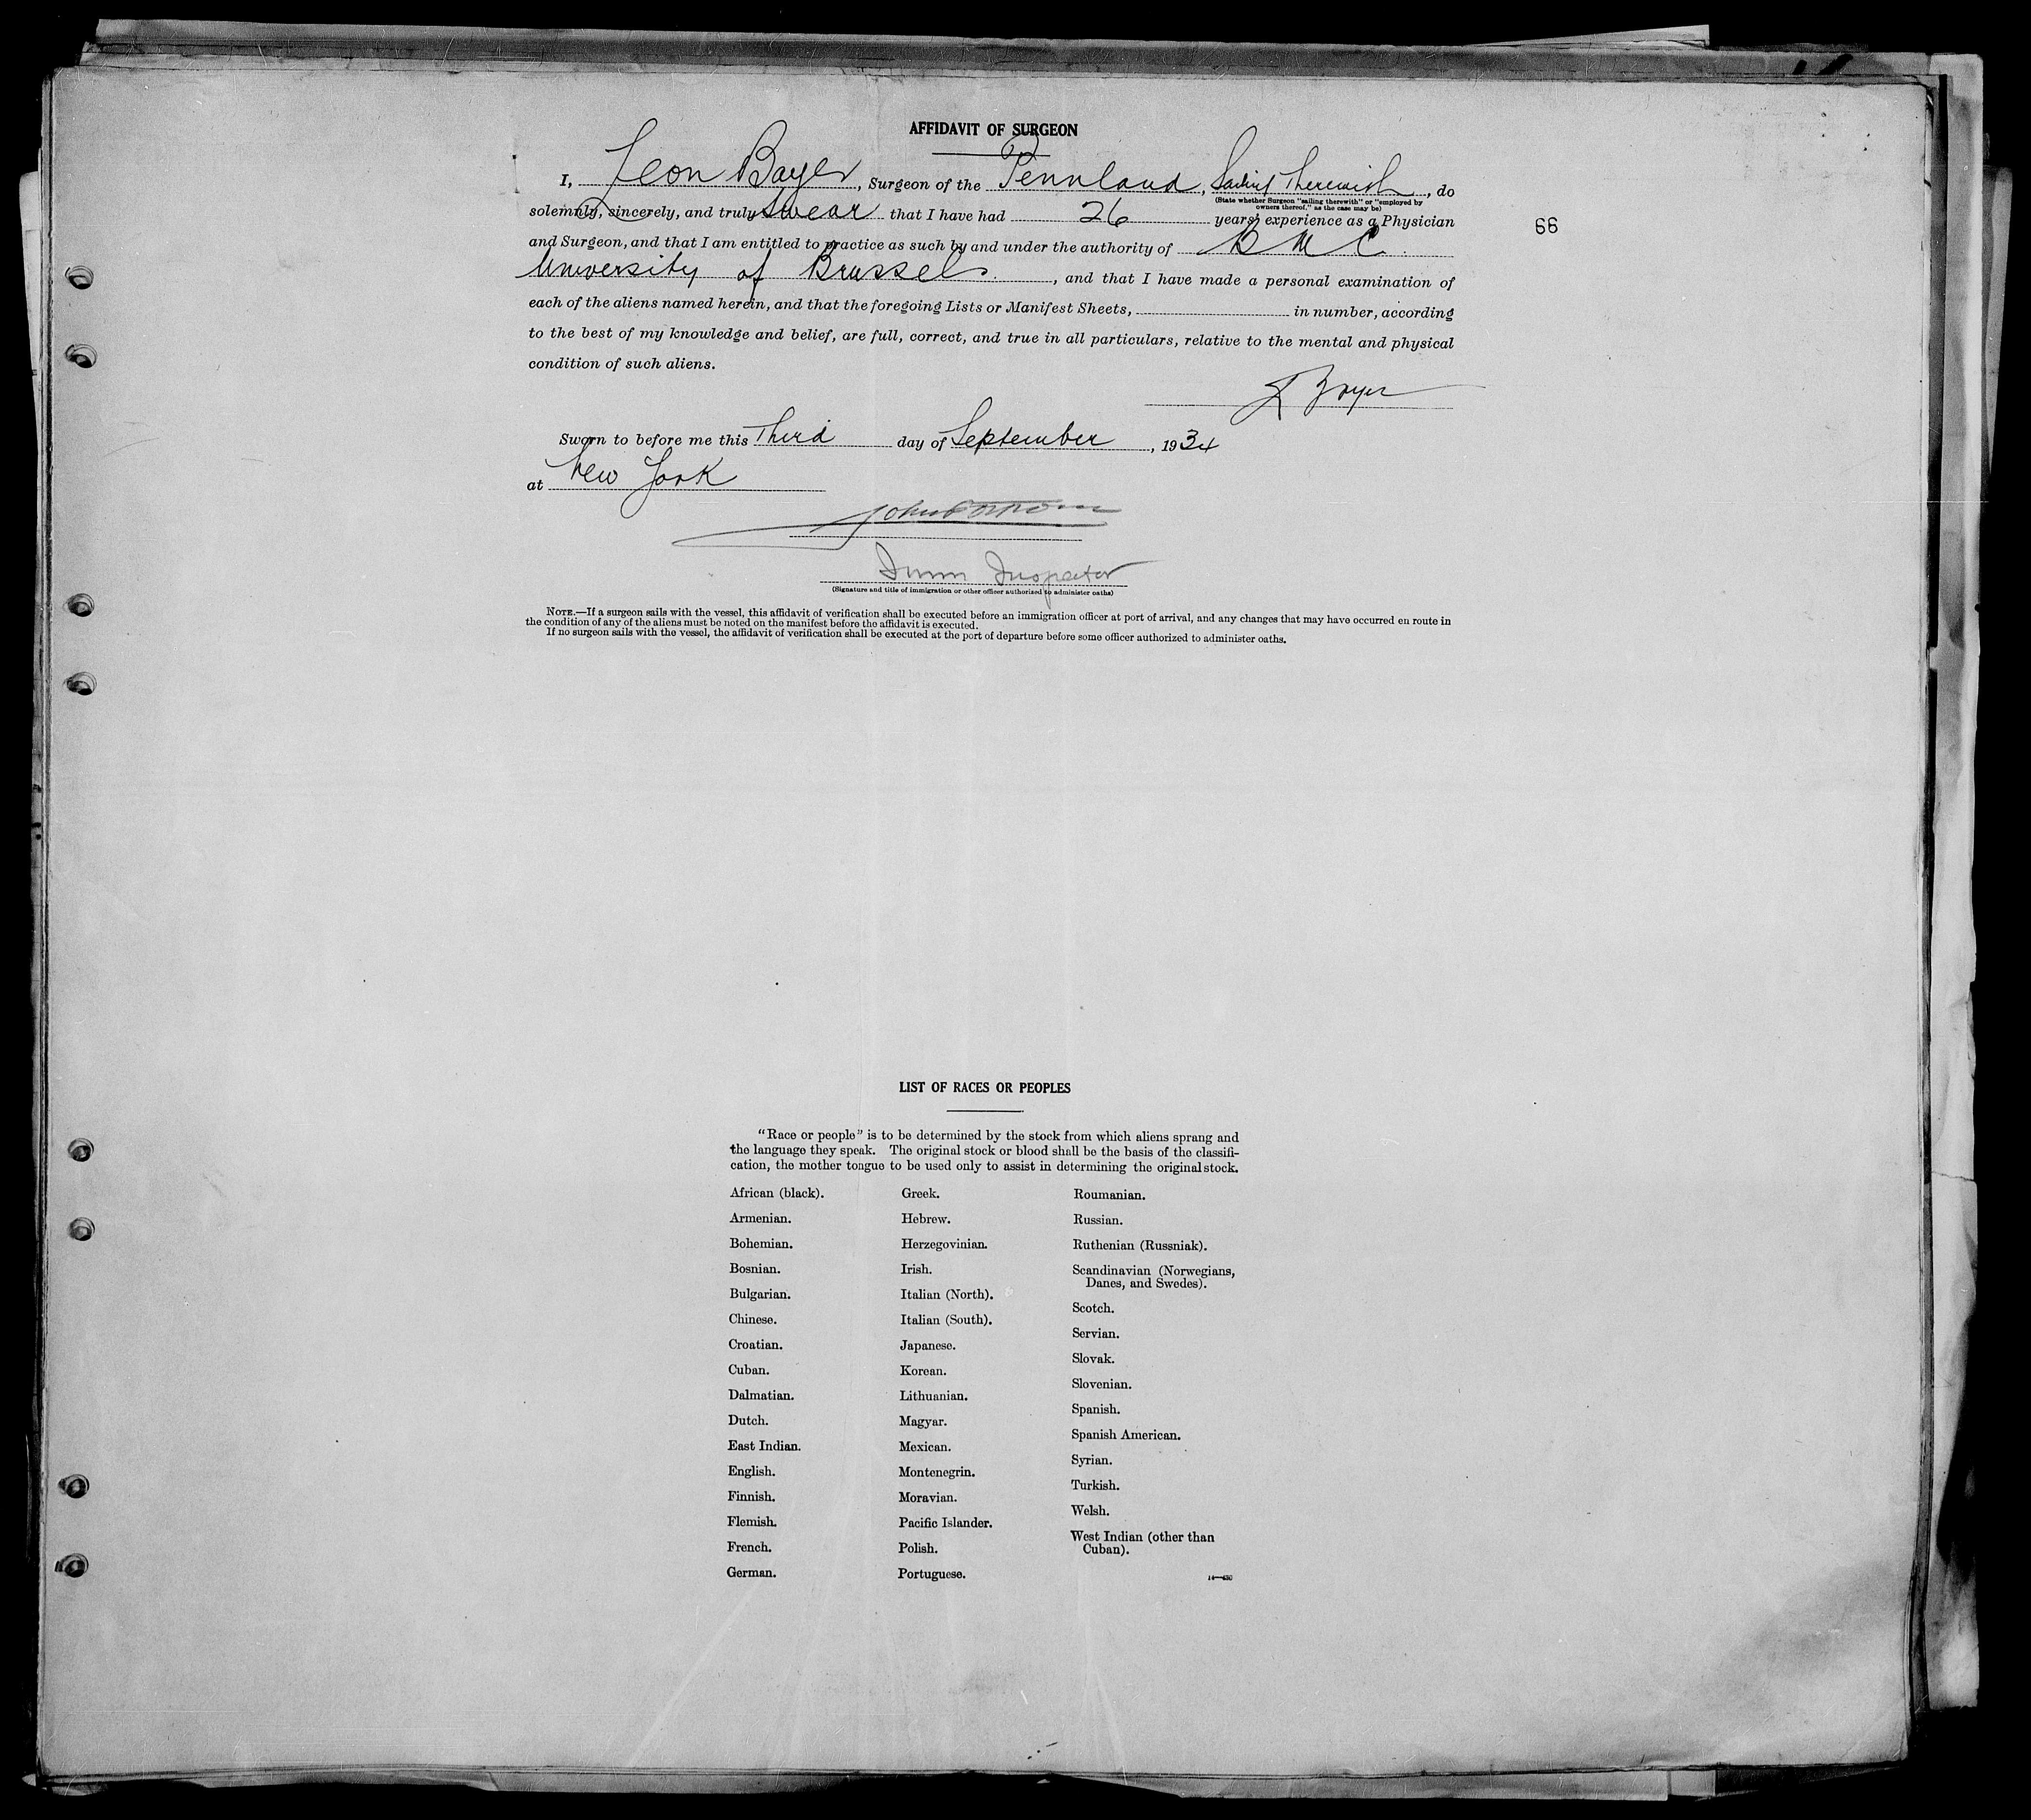 AFFIDAVIT OF SURGEON
I, Leon Bayer, Surgeon of the Pennland, Sailing Therewith, do
(State whether Surgeon "sailing therewith" or "employed by
owners thereof," as the case may be)
solemnly, sincerely, and truly swear that I have had 26 years' experience as a Physician
66
and Surgeon, and that I am entitled to practice as such by and under the authority of
University of Brussels, and that I have made a personal examination of
each of the aliens named herein, and that the foregoing Lists or Manifest Sheets, in number, according
to the best of my knowledge and belief, are full, correct, and true in all particulars, relative to the mental and physical
condition of such aliens.
L Bayer
Sworn to before me this Third day of September, 1934
at New York
Imm Inspector
(Signature and title of immigration or other officer authorized to administer oaths)
NOTE.—If a surgeon sails with the vessel, this affidavit of verification shall be executed before an immigration officer at port of arrival, and any changes that may have occurred en route in
the condition of any of the aliens must be noted on the manifest before the affidavit is executed.
If no surgeon sails with the vessel, the affidavit of verification shall be executed at the port of departure before some officer authorized to administer oaths.
LIST OF RACES OR PEOPLES
"Race or people" is to be determined by the stock from which aliens sprang and
the language they speak. The original stock or blood shall be the basis of the classifi-
cation, the mother tongue to be used only to assist in determining the original stock.
African (black).
Armenian.
Bohemian.
Bosnian.
Bulgarian.
Chinese.
Croatian.
Cuban.
Dalmatian.
Dutch.
East Indian.
English.
Finnish.
Flemish.
French.
German.
Greek.
Hebrew.
Herzegovinian.
Irish.
Italian (North).
Italian (South).
Japanese.
Korean.
Lithuanian.
Magyar.
Mexican.
Montenegrin.
Moravian.
Pacific Islander.
Polish.
Portuguese.
Roumanian.
Russian.
Ruthenian (Russniak).
Scandinavian (Norwegians,
Danes, and Swedes).
Scotch.
Servian.
Slovak.
Slovenian.
Spanish.
Spanish American.
Syrian.
Turkish.
Welsh.
West Indian (other than
Cuban).